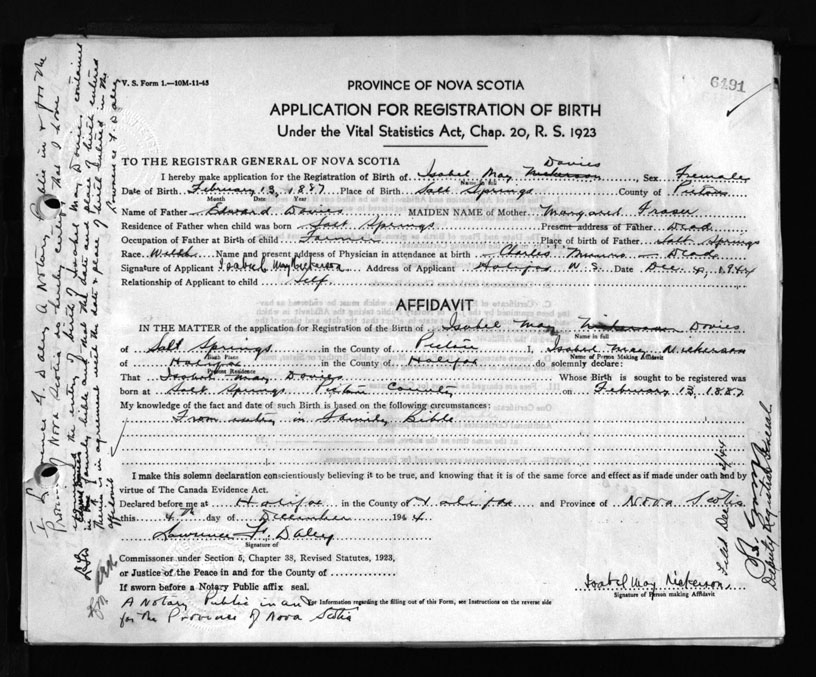 V. S. Form 1.—10M-11-43
6191
PROVINCE OF NOVA SCOTIA
APPLICATION FOR REGISTRATION OF BIRTH
Under the Vital Statistics Act, Chap. 20, R. S. 1923
TO THE REGISTRAR GENERAL OF NOVA SCOTIA
Davies
I hereby make application for the Registration of Birth of Isabel May Nickerson, Sex Female
Name in full
Date of Birth February 13, 1887 Place of Birth Salt Springs County of Pictou
Month Date Year
Name of Father Edward Davies MAIDEN NAME of Mother Margaret Fraser
Residence of Father when child was born Salt Springs Present address of Father Dead
Occupation of Father at Birth of child Farmer Place of birth of Father Salt Springs
Race Welsh Name and present address of Physician in attendance at birth Charles Munro — Dead
Signature of Applicant Isabel May Nickerson Address of Applicant Halifax N. S. Date Dec. 4, 1944
Relationship of Applicant to child Self
AFFIDAVIT
IN THE MATTER of the application for Registration of the Birth of Isabel May Nickerson Davies
Name in full
of Salt Springs in the County of Pictou I, Isabel May Nickerson
Birth Place Name of Person Making Affidavit
of Halifax in the County of Halifax do solemnly declare:
Present Residence
That Isabel May Davies Whose Birth is sought to be registered was
born at Salt Springs Pictou County on February 13, 1887
My knowledge of the fact and date of such Birth is based on the following circumstances:
From entry in Family Bible
I make this solemn declaration conscientiously believing it to be true, and knowing that it is of the same force and effect as if made under oath and by
virtue of The Canada Evidence Act.
Declared before me at Halifax in the County of Halifax and Province of Nova Scotia
this 4th day of December 1944
Lawrence F. Daley
Signature of
Commissioner under Section 5, Chapter 38, Revised Statutes, 1923,
or Justice of the Peace in and for the County of
If sworn before a Notary Public affix seal.
Isabel May Nickerson
Signature of Person making Affidavit
A Notary Public in and
For Information regarding the filling out of this Form, see Instructions on the reverse side
for the Province of Nova Scotia
I, Lawrence F. Daley A Notary Public in & for the
Province of Nova Scotia do hereby certify that I have
the entry of birth of Isabel May Davies contained
in the family bible and that the date and place of birth entered
therein is in agreement with the date & place of birth entered in the
affidavit
Lawrence F. Daley
Filed Dec
Deputy Registrar General